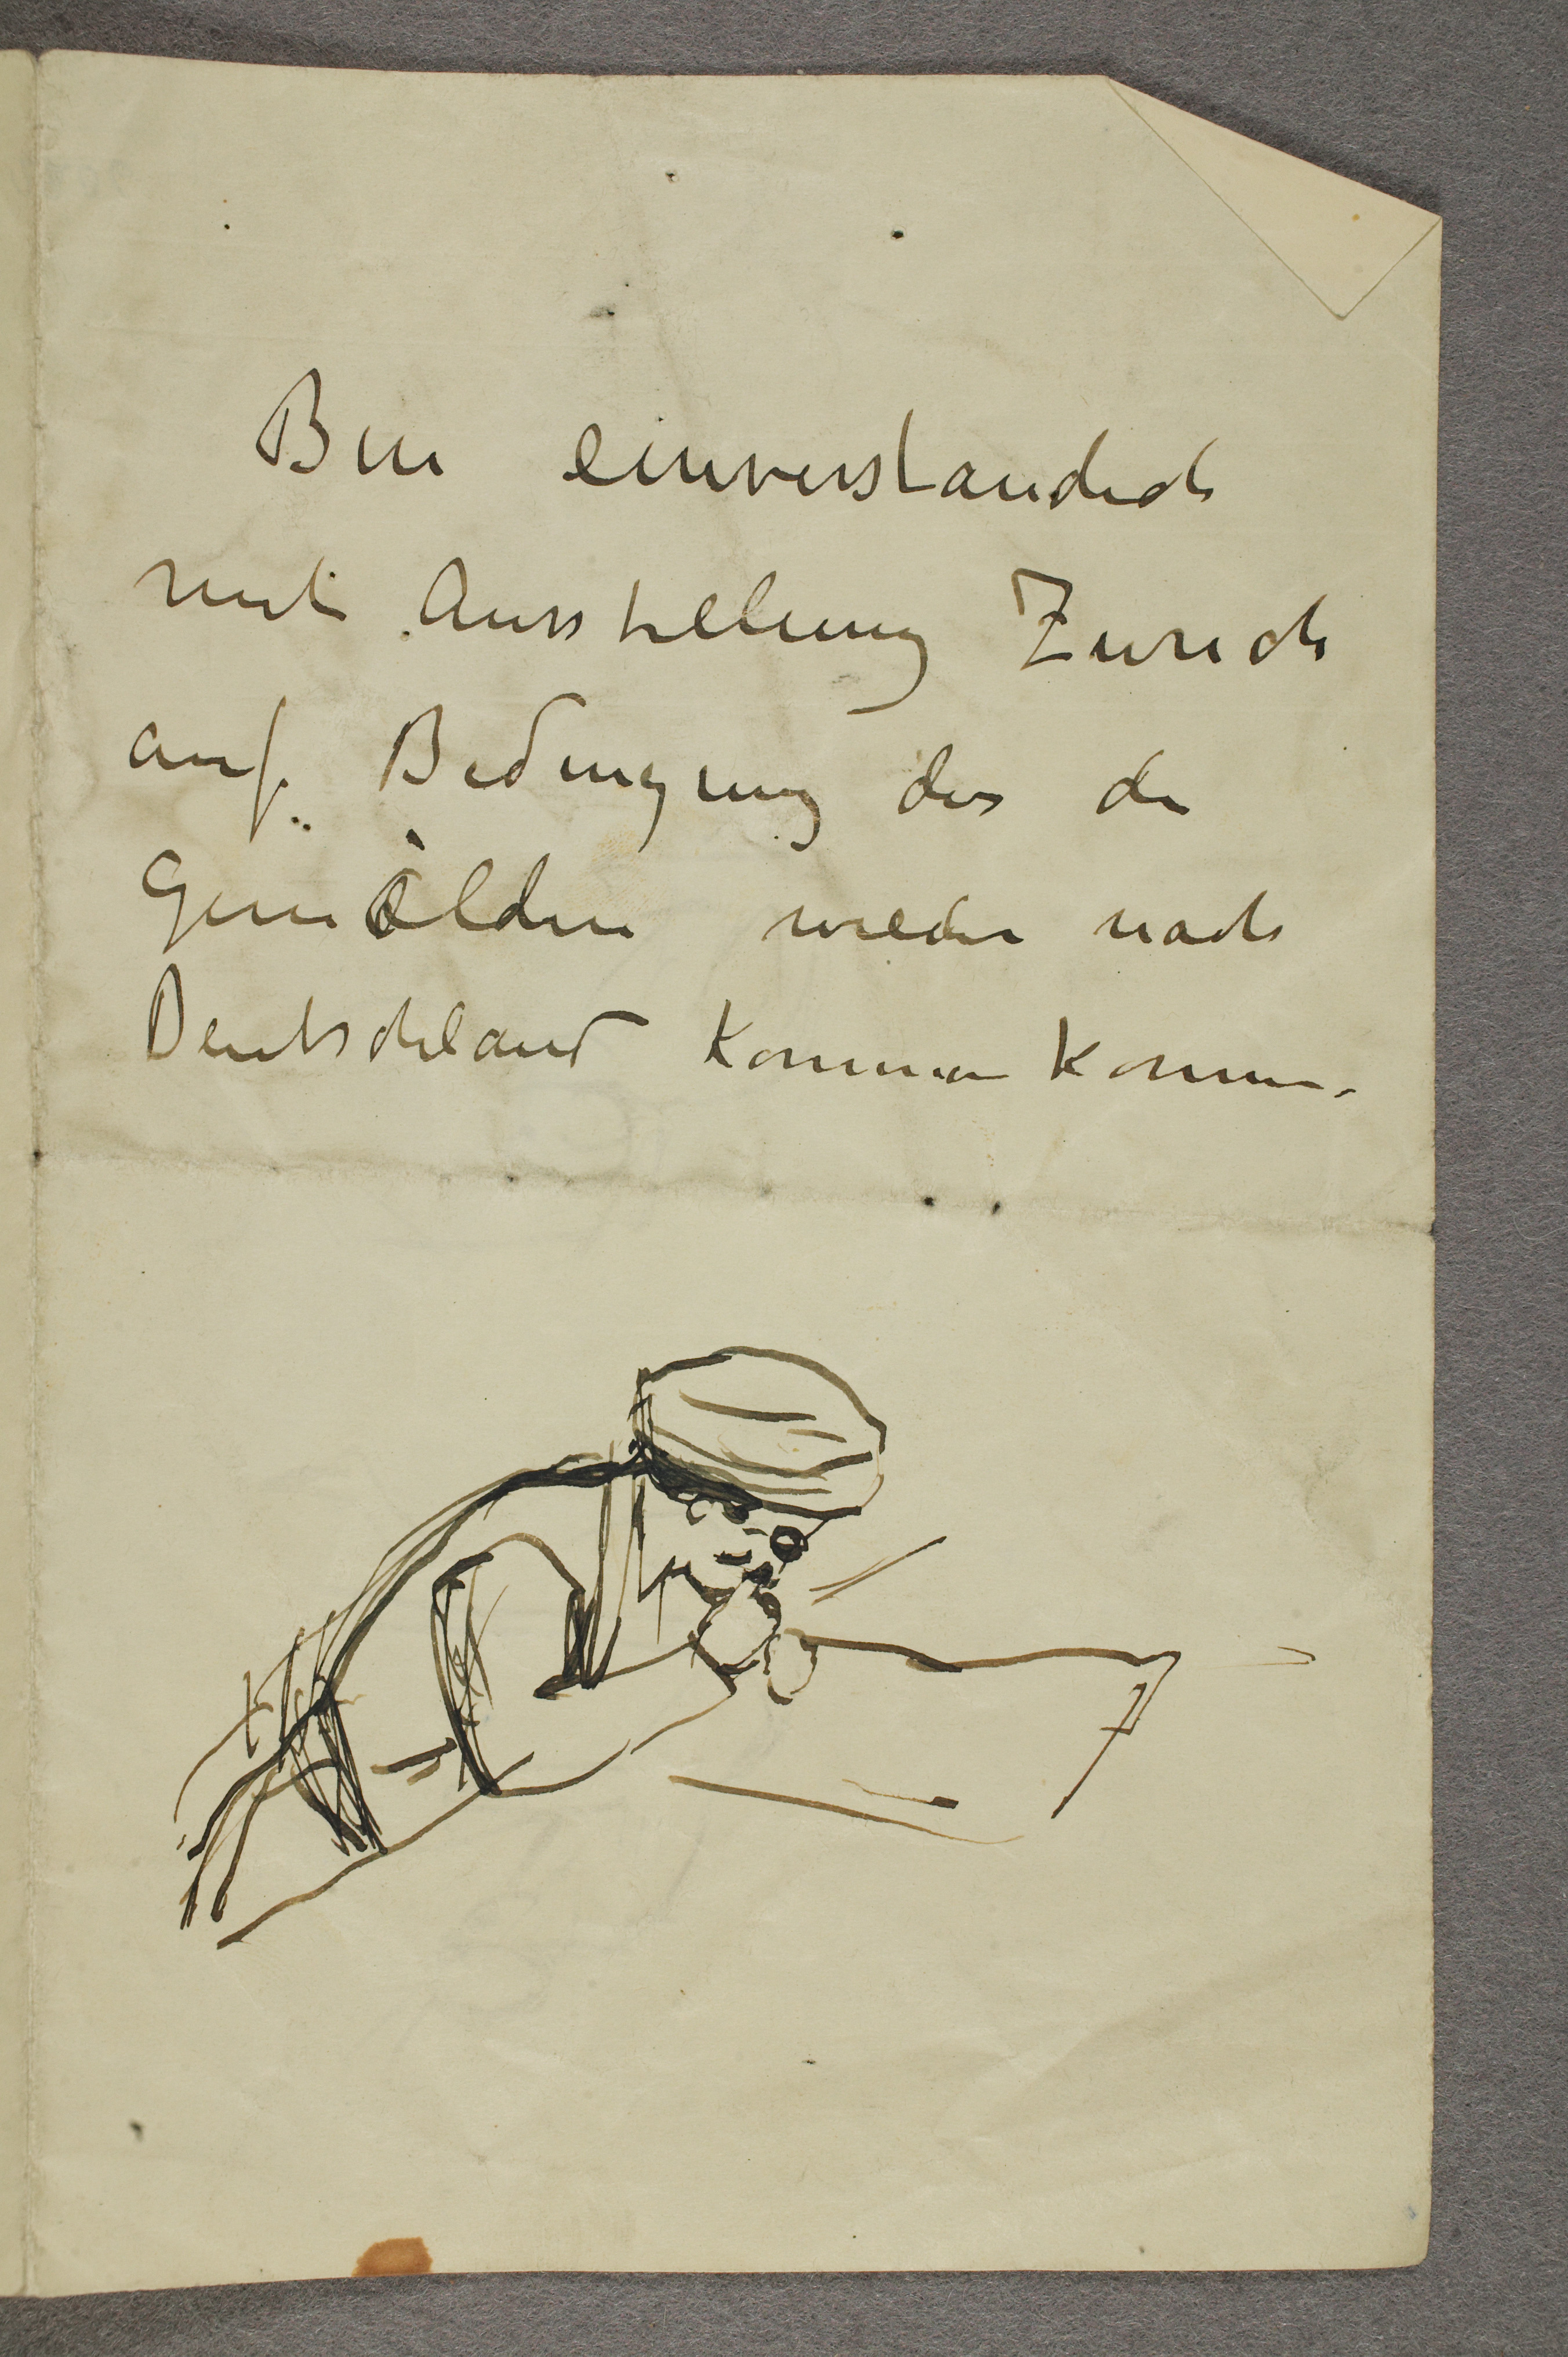 Bin einverstandich
mit Ausstellung Zurich
auf Bedingung das die
Gemälden wieder nach
Deutschland kommen konnen.